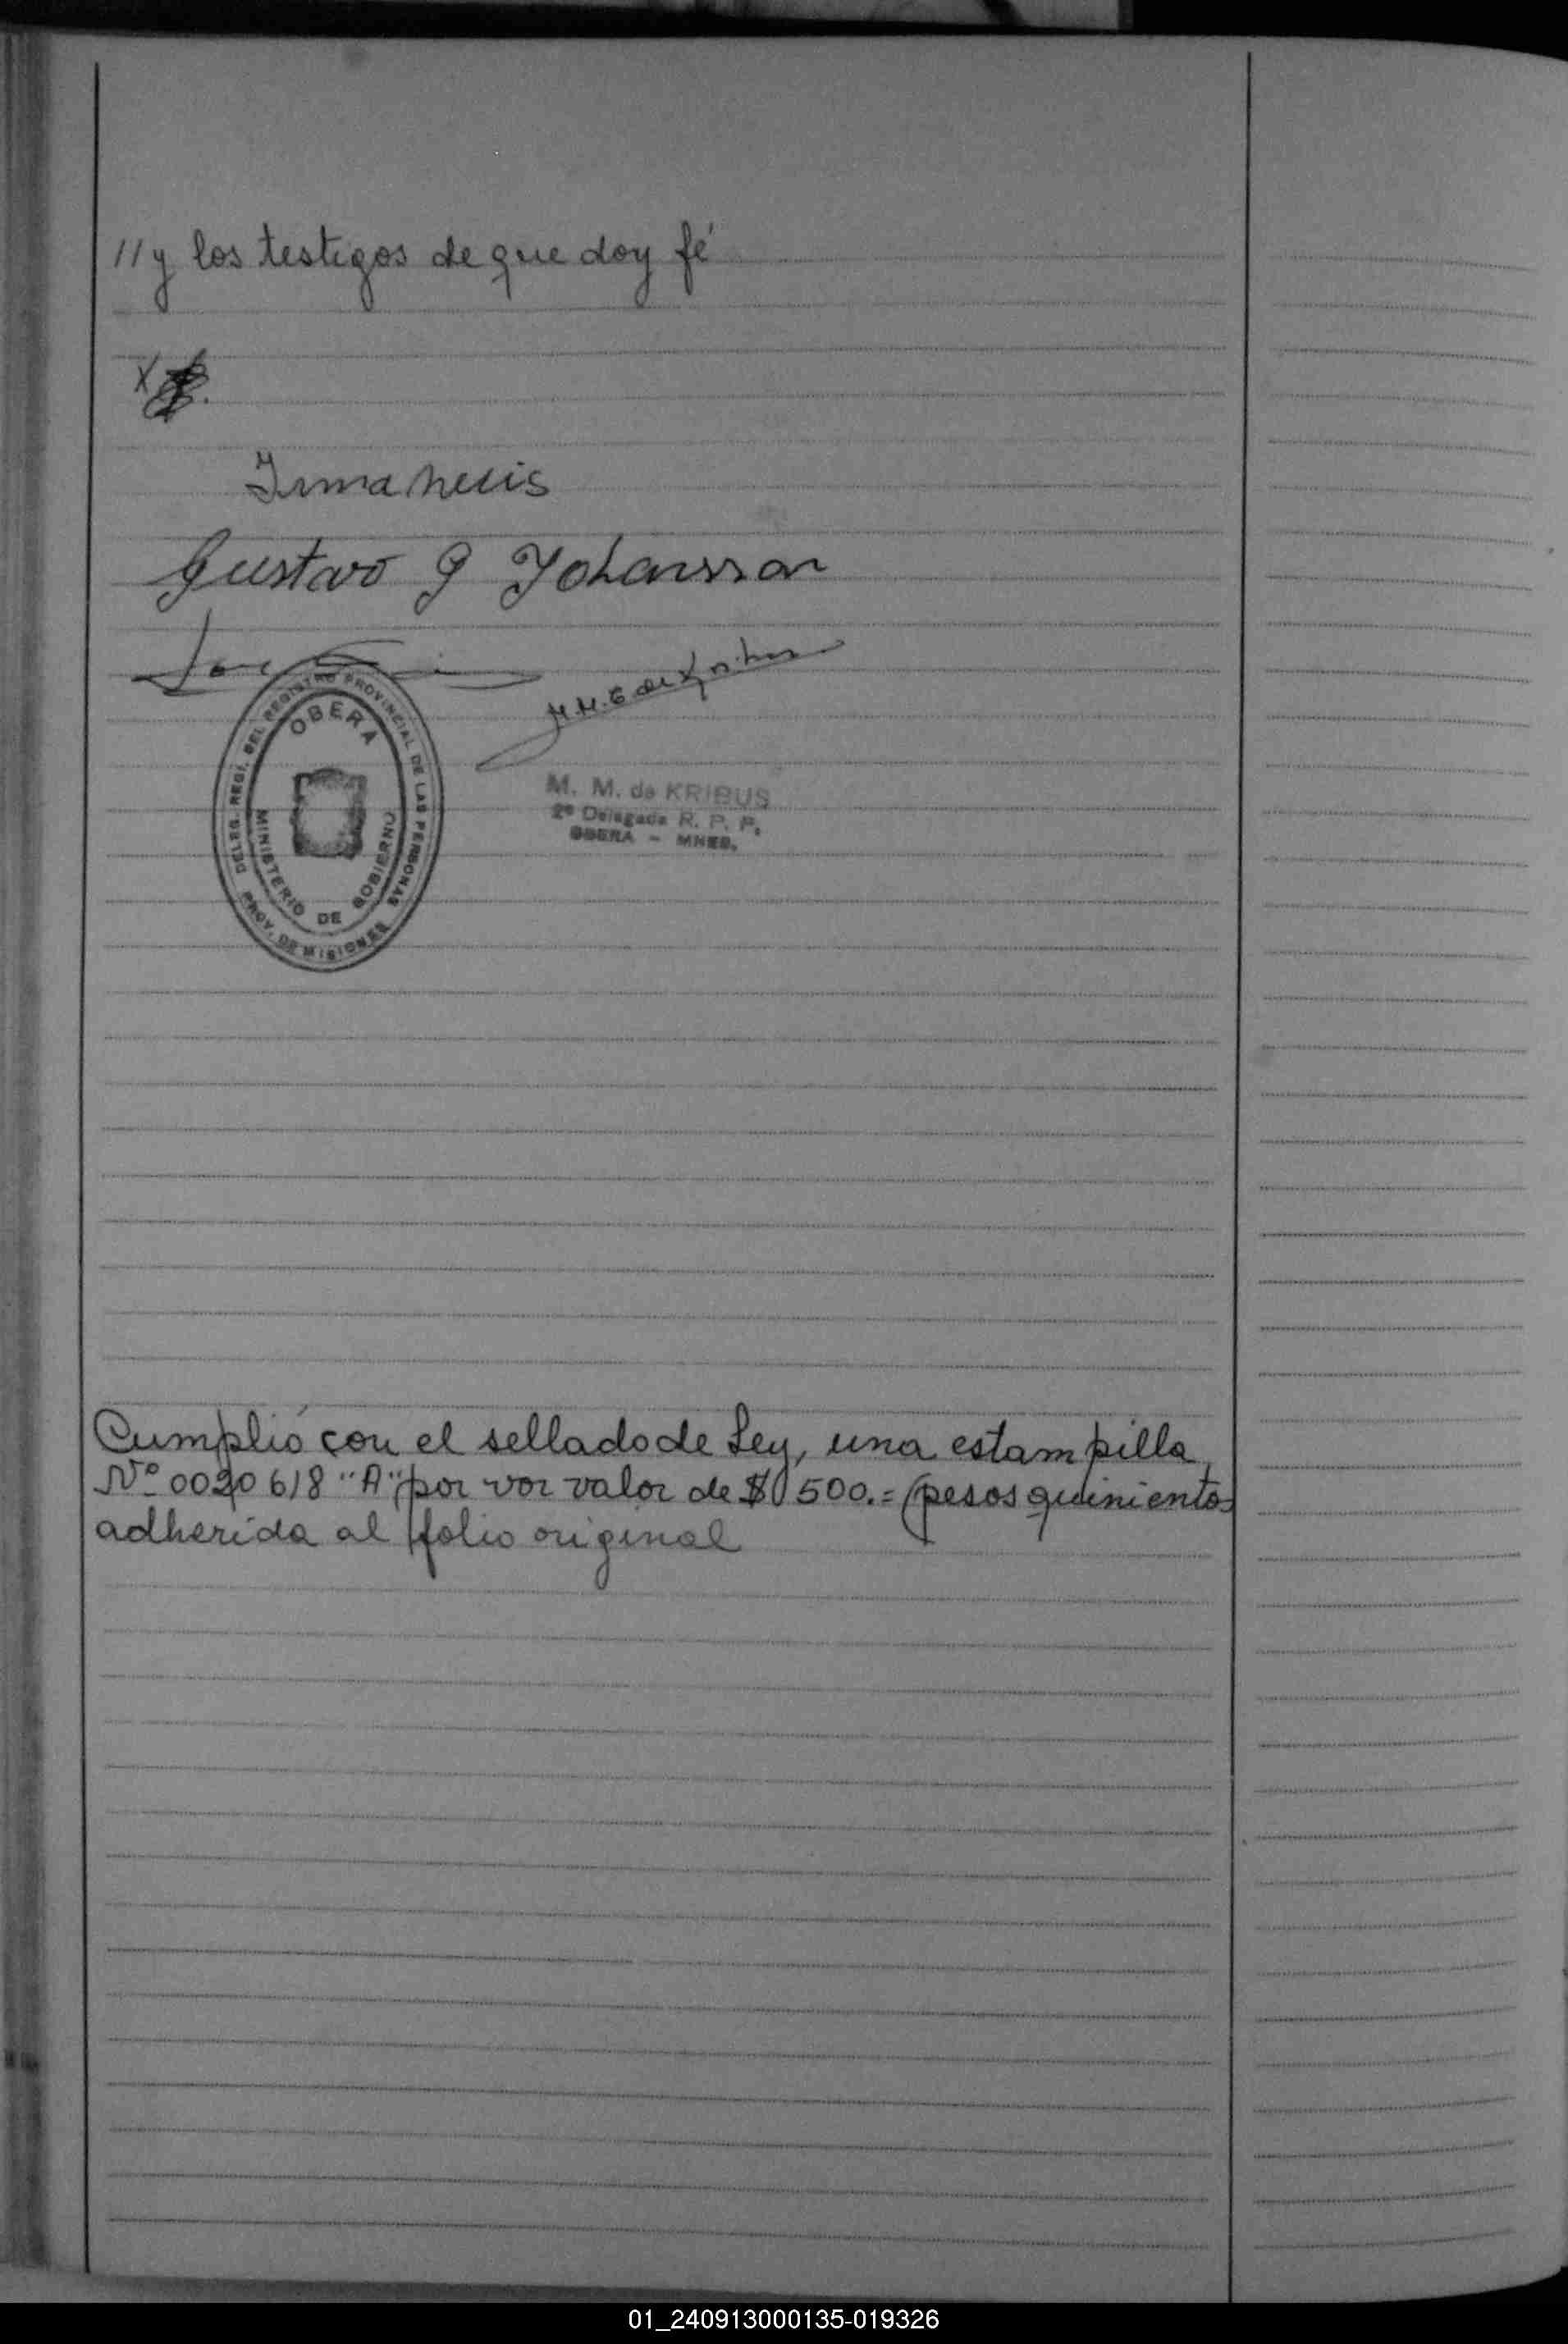 //y los testigos de que doy fé
X
Irma
Gustavo G Johansson
M. M. de KRIBUS
2ª Delegada R. P. P.
OBERA - MNES.
DELEG. REGI. DEL REGISTRO PROVINCIAL DE LAS PERSONAS
OBERA
MINISTERIO DE GOBIERNO
PROV. DE MISIONES
Cumplió con el sellado de Ley, una estampilla
Nº 0020618 "A" por vor valor de $ 500.= (pesos quinientos
adherida al folio original
01_240913000135-019326